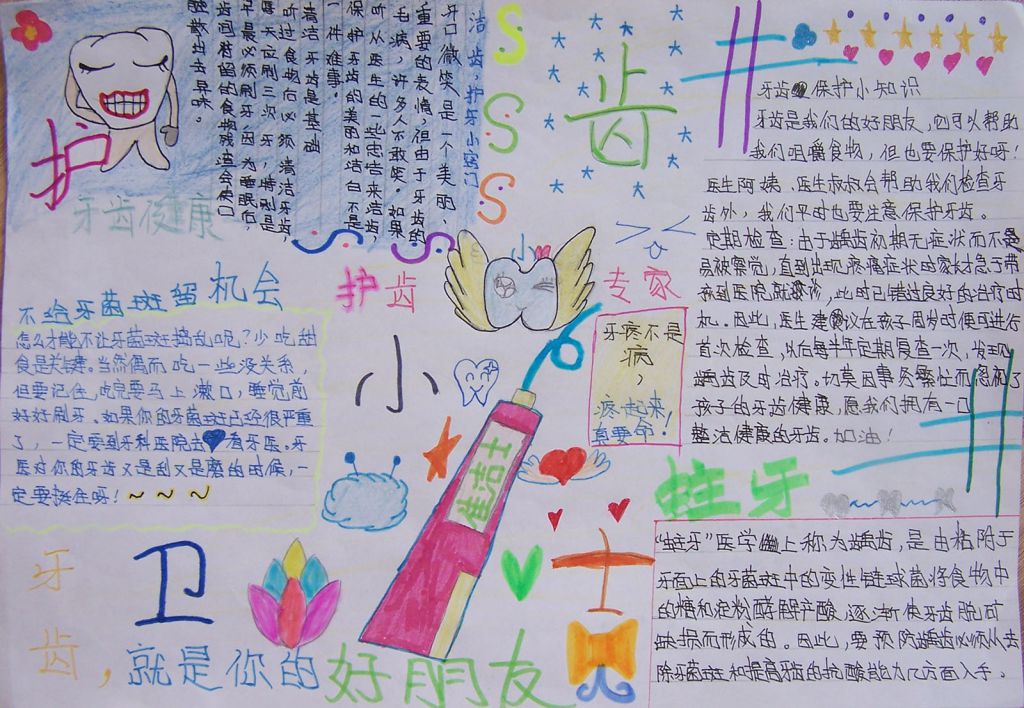 洁齿，护牙小窍门
牙口微笑是一个美丽、
重要的表情，但由于牙齿的
毛病，许多人不敢笑。如果
听从医生的一些忠告来洁齿，
保护牙齿的美丽和洁白不是
一件难事。
清洁牙齿是基础
听过食物后必须清洁牙齿，
每天应刷三次牙，特别是
最必须刷牙因为睡眠后，
齿间稍留的食物残渣会使口
腔散出去异味。
护
牙齿健康
S
S
S
齿
牙齿保护小知识
牙齿是我们的好朋友，它可以帮助
我们咀嚼食物，但也要保护好呀！
医生阿姨、医生叔叔会帮助我们检查牙
齿外，我们平时也要注意保护牙齿。
定期检查：由于龋齿初期无症状而不是
易被察觉，直到出现疼痛症状时家长才急于带
孩到医院就诊，此时已错过良好的治疗时
机。因此，医生建议在孩子周岁时便可进行
首次检查，以后每半年定期复查一次，发现
龋齿及时治疗。切莫因事务繁忙而忽视了
孩子的牙齿健康，愿我们拥有一口
整洁健康的牙齿。加油！
不给牙菌斑留机会
怎么才能不让牙菌斑捣乱呢？少吃甜
食是关键。当然偶而吃一些没关系，
但要记住，吃完要马上漱口，睡觉前
好好刷牙。如果你的牙菌斑已经很严重
了，一定要到牙科医院去看牙医。牙
医对你的牙齿又是刮又是磨的时候，一
定要挺住呀！～～～
护齿
小
专家
牙疼不是
病，
疼起来
真要命！
小
佳洁士
蛀牙
“蛀牙”医学上称为龋齿，是由粘附于
牙面上的牙菌斑中的变性链球菌将食物中
的糖和淀粉酵解产酸，逐渐使牙齿脱矿
缺损而形成的。因此，要预防龋齿必须从去
除牙菌斑和提高牙齿的抗酸能力几方面入手。
卫
士
牙
齿，就是你的好朋友